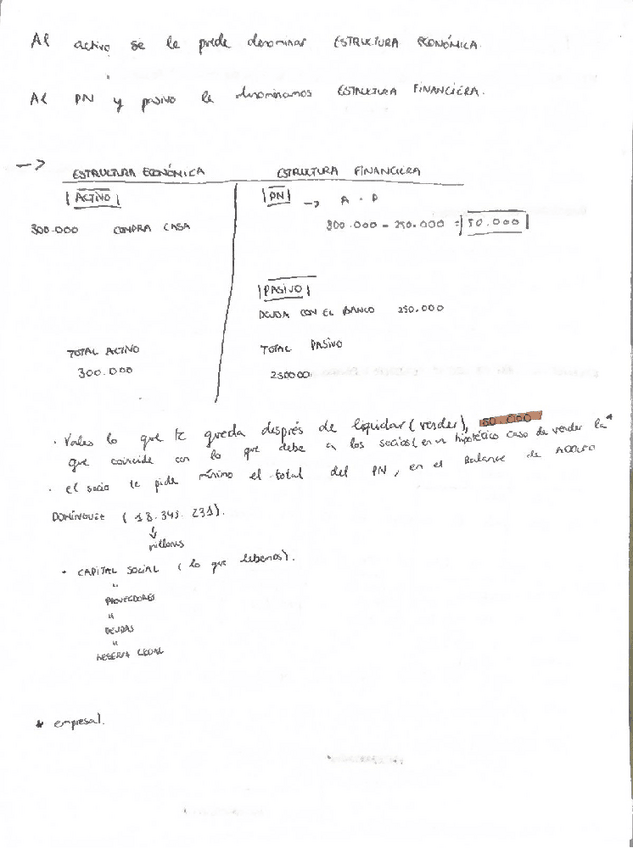 Al activo se le puede denominar ESTRUCTURA ECONÓMICA.
Al PN y pasivo le denominamos ESTRUCTURA FINANCIERA.
→ ESTRUCTURA ECONÓMICA ESTRUCTURA FINANCIERA
|ACTIVO| |PN| → A - P
300.000 COMPRA CASA 300.000 - 250.000 = |50.000|
|PASIVO|
DEUDA CON EL BANCO 250.000
TOTAL ACTIVO TOTAL PASIVO
300.000 250000
· Vales lo que te queda después de liquidar (vender), 50.000
que coincide con lo que debe a los socios (en un hipotético caso de vender la*
· el socio te pide mínimo el total del PN, en el Balance de ADOLFO
DOMÍNGUEZ (18.345.231).
↓
millones
· CAPITAL SOCIAL (lo que debemos).
"
PROVEEDORES
"
DEUDAS
"
RESERVA LEGAL
* empresa).